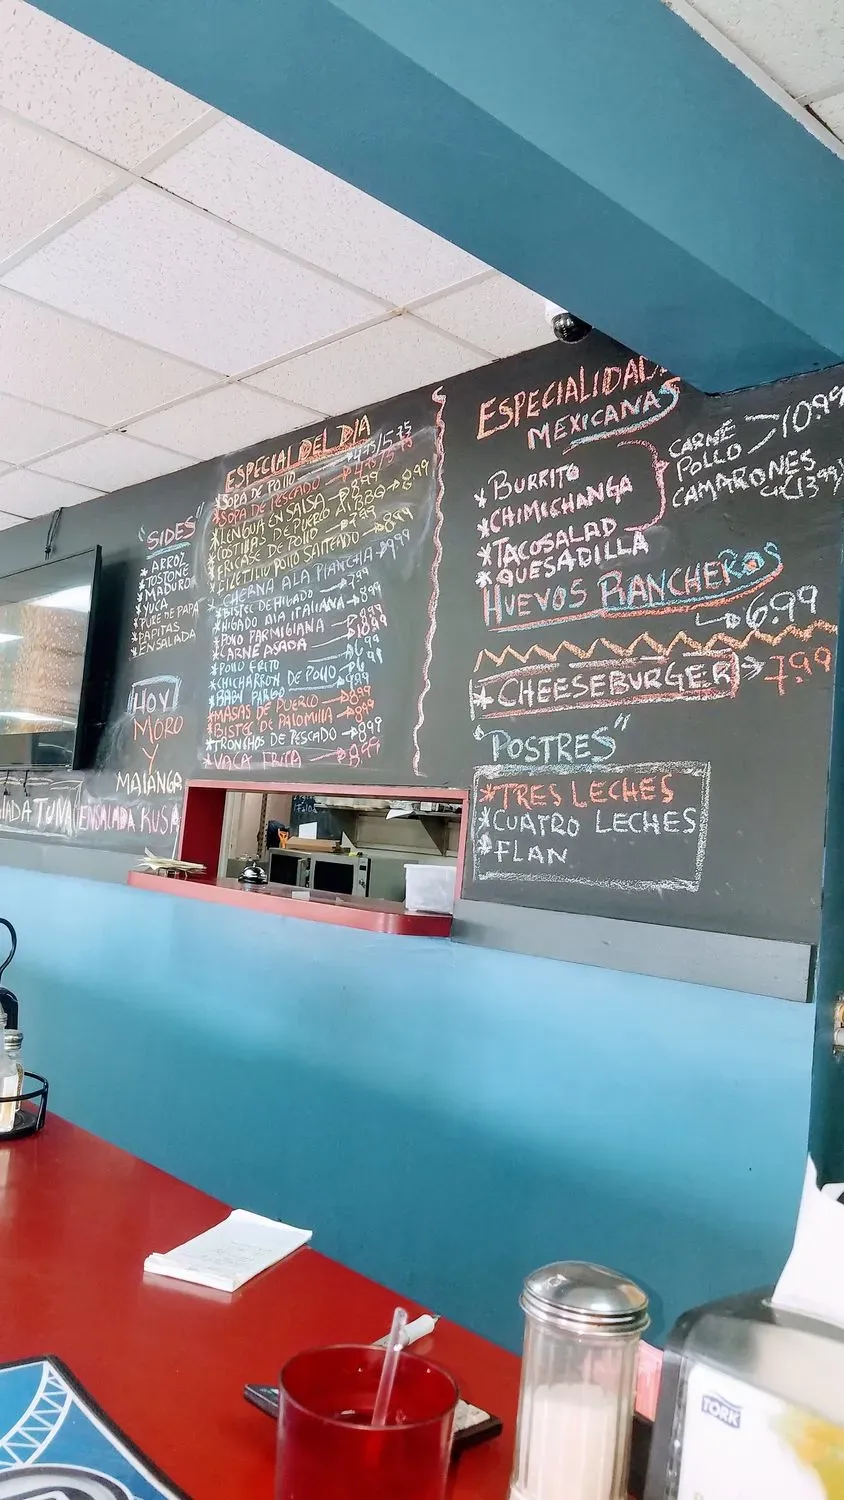 "SIDES"
* ARROZ
* TOSTONE
* MADURO
* YUCA
* PURE DE PAPA
* PAPITAS
* ENSALADA
HOY
MORO
Y
MALANGA
TUNA
ENSALADA RUSA
ESPECIAL DEL DIA
* SOPA DE POLLO → 4.75/5.75
* SOPA DE PESCADO → 4.75/5.75
* LENGUA EN SALSA → 8.99
* COSTILLAS DE PUERCO AL BBQ → 8.99
* FRICASE DE POLLO → 7.99
* FILETILLO POLLO SALTEADO → 8.99
* CHERNA A LA PLANCHA → 9.99
* BISTEC DE HIGADO → 7.99
* HIGADO A LA ITALIANA → 8.99
* POLLO PARMIGIANA → 8.99
* CARNE ASADA → 10.99
* POLLO FRITO
* CHICHARRON DE POLLO
* BABY PARGO
* MASAS DE PUERCO → 8.99
* BISTEC DE PALOMILLA → 8.99
* TRONCHOS DE PESCADO → 8.99
* VACA FRITA → 8.99
ESPECIALIDADES
MEXICANAS
* BURRITO
* CHIMICHANGA
* TACOSALAD
* QUESADILLA
CARNE
POLLO
10.99
CAMARONES
13.99
HUEVOS RANCHEROS
→ 6.99
* CHEESEBURGER → 7.99
"POSTRES"
* TRES LECHES
* CUATRO LECHES
* FLAN
TORK